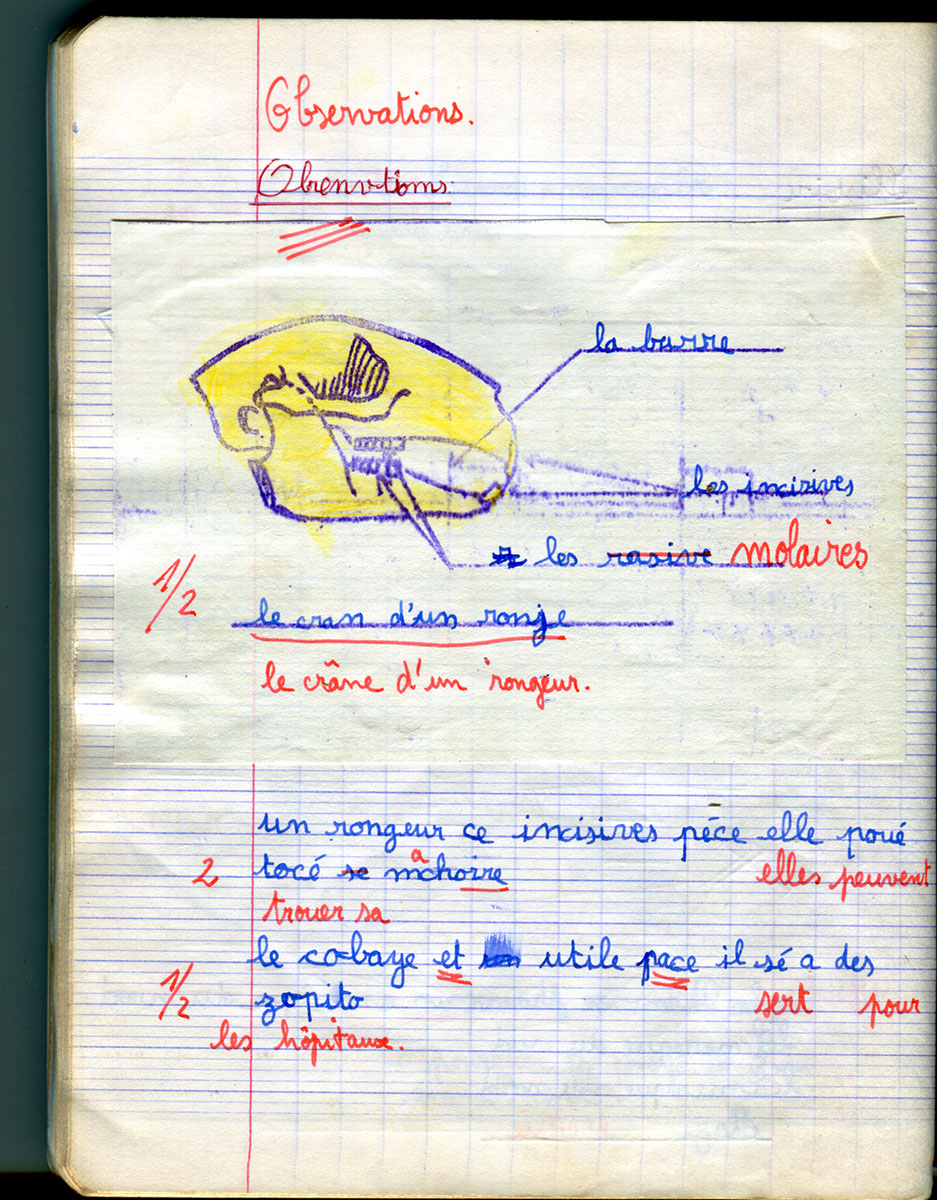 Observations.
Obenvtions.
la barre
les incisives
les rasive molaires
1/2
le cran d'un ronje
le crâne d'un rongeur.
un rongeur ce incisives péce elle poué
2 tocé se mchoire a elles peuvent
trouer sa
le cobaye et utile pace il sé a des
1/2 zopito sert pour
les hôpitaux.